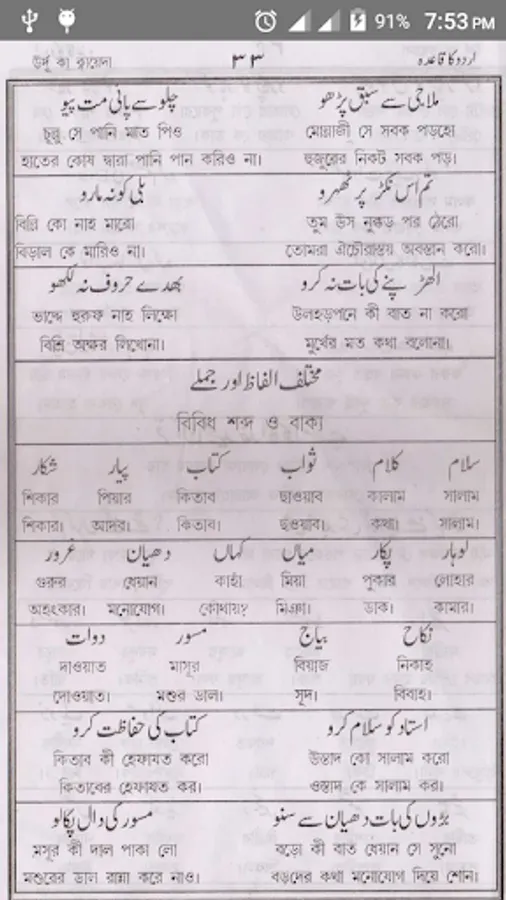 91% 7:53 PM
উর্দু কা ক্বায়েদা ۳۳ اردو کا قاعدہ
ملا جی سے سبق پڑھو چلو سے پانی مت پیو
মোল্লাজী সে সবক পড়হো চুল্লু সে পানি মাত পিও
হুজুরের নিকট সবক পড়। হাতের কোষ দ্বারা পানি পান করিও না।
تم اس نکڑ پر ٹھہرو بلی کو نہ مارو
তুম উস নুকড় পর ঠেরো বিল্লি কো নাহ মারো
তোমরা ঐচৌরাস্তায় অবস্তান করো। বিড়াল কে মারিও না।
الھڑ پنے کی بات نہ کرو بھدے حروف نہ لکھو
উলহড়পনে কী বাত না করো ভাদ্দে হুরুফ নাহ লিক্ষো
মুর্খের মত কথা বলোনা। বিশ্রি অক্ষর লিখোনা।
مختلف الفاظ اور جملے
বিবিধ শব্দ ও বাক্য
سلام کلام ثواب کتاب پیار شکار
সালাম কালাম ছাওয়াব কিতাব পিয়ার শিকার
সালাম। কথা। ছওয়াব। কিতাব। আদর। শিকার।
لوہار پکار میاں کہاں دھیان غرور
লোহার পুকার মিয়া কাহাঁ ধেয়ান গুরুর
কামার। ডাক। মিঞা। কোথায়? মনোযোগ। অহংকার।
نکاح بیاج مسور دوات
নিকাহ বিয়াজ মাসূর দাওয়াত
বিবাহ। সূদ। মশুর ডাল। দোওয়াত।
استاد کو سلام کرو کتاب کی حفاظت کرو
উস্তাদ কো সালাম করো কিতাব কী হেফাযত করো
ওস্তাদ কে সালাম কর। কিতাবের হেফাযত কর।
بڑوں کی بات دھیان سے سنو مسور کی دال پکالو
বড়ো কী বাত ধেয়ান সে সুনো মসূর কী দাল পাকা লো
বড়দের কথা মনোযোগ দিয়ে শোন। মশুরের ডাল রান্না করে নাও।